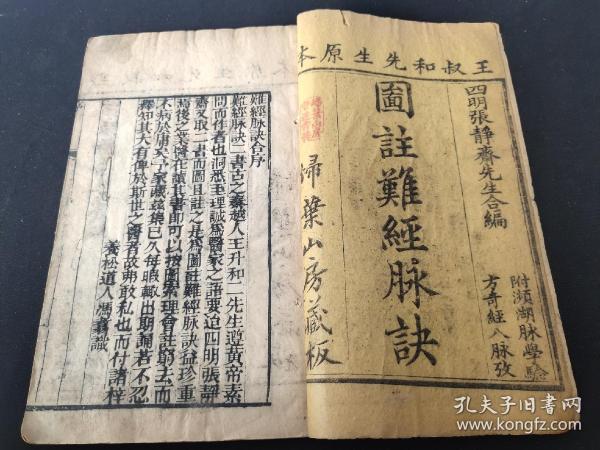 王叔和先生原本
四明張靜齋先生合編
圖註難經脉訣
附瀕湖脉學
方奇經八脉攷
埽葉山房藏板
難經脉訣合序
難經脉訣二書古之秦越人王叔和二先生遵黃帝素
問而作者也洞悉玄理誠為醫家之語要迨四明張靜
齋又取二書而圖且註之是為圖註難經脉訣益珍重
焉後之業醫者讀其書即可以按圖索理會註窮玄而
不病於庸矣予家藏茲集已久每暇輒出期誦若不忍
釋知其大有俾於斯世之醫者故弗敢私也而付諸梓
養松道人馮 識
孔夫子旧书网
www.kongfz.com